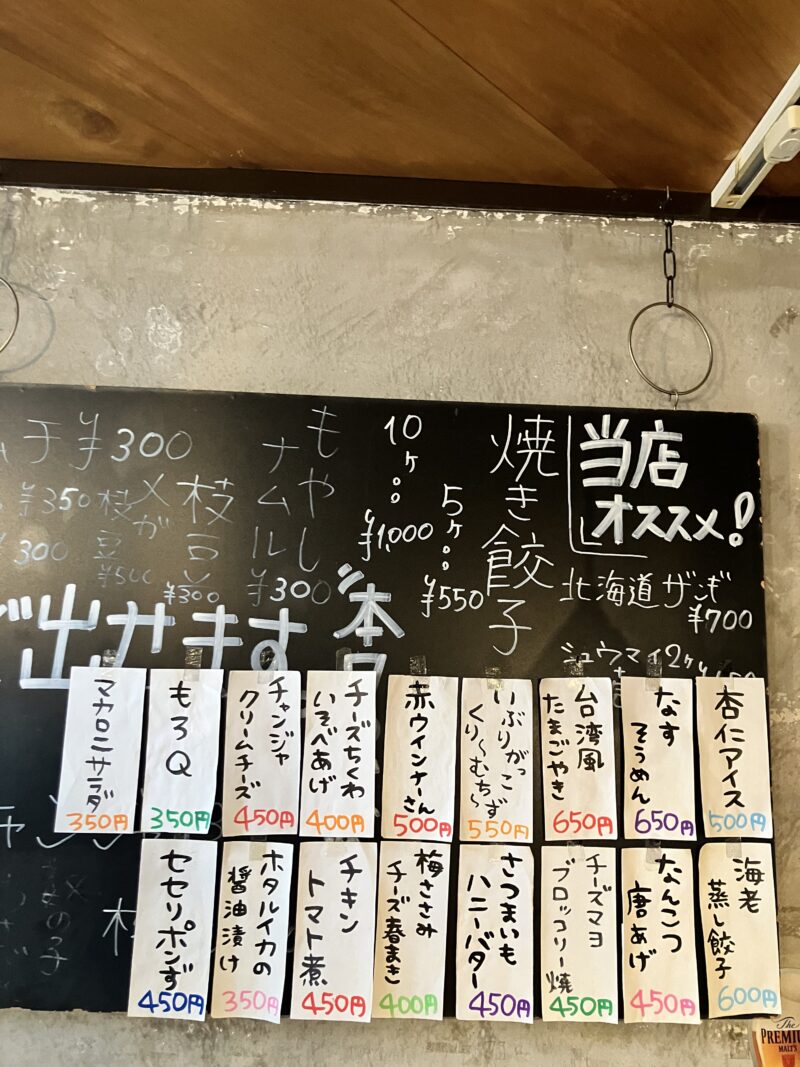 当店
オススメ!
北海道ザンギ
¥700
シュウマイ2ケ
焼き餃子
5ケ
¥550
10ケ
¥1,000
もやし
ナムル
¥300
枝豆
¥300
メガ
枝豆
¥500
¥300
¥350
¥300
出来ます
杏仁アイス
500円
なす
そうめん
650円
台湾風
たまごやき
650円
いぶりがっこ
くり〜むち〜ず
550円
赤ウインナーさん
500円
チーズちくわ
いそべあげ
400円
チャンジャ
クリームチーズ
450円
もろQ
350円
マカロニサラダ
350円
海老
蒸し餃子
600円
なんこつ
唐あげ
450円
チーズマヨ
ブロッコリー焼
450円
さつまいも
ハニーバター
450円
梅ささみ
チーズ春まき
400円
チキン
トマト煮
450円
ホタルイカの
醤油漬け
350円
セセリポンず
450円
The
PREMIUM
MALT'S